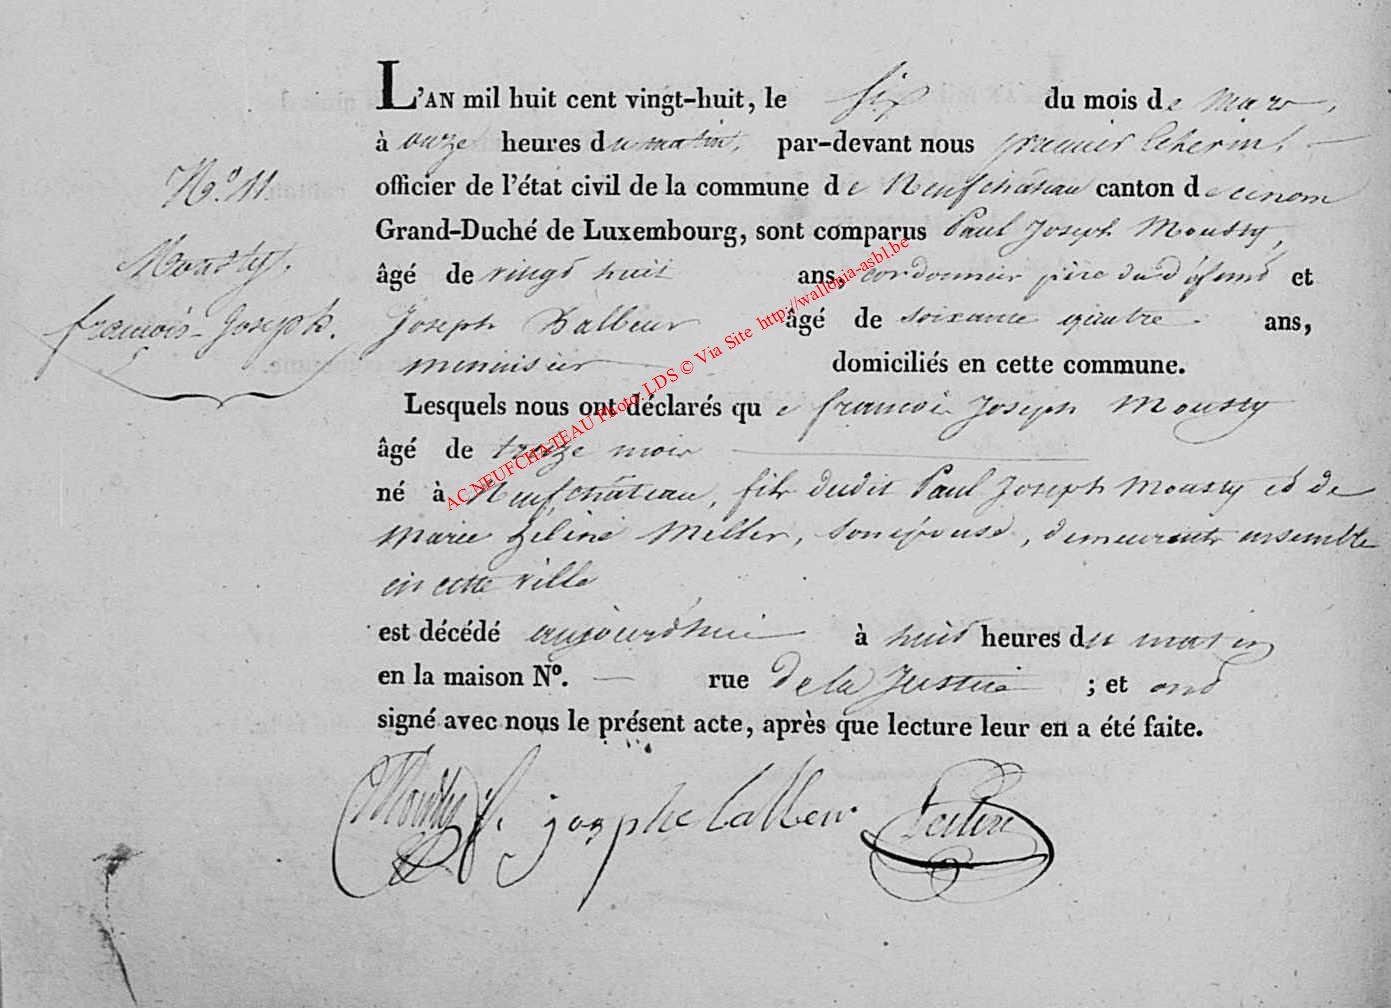 L'AN mil huit cent vingt-huit, le six du mois de mars,
à onze heures du matin, par-devant nous premier Echevin,
officier de l'état civil de la commune de Neufchâteau canton de ce nom
Grand-Duché de Luxembourg, sont comparus Paul Joseph Mousty,
âgé de vingt huit ans, cordonnier père du défunt et
Joseph Lalleur âgé de soixante quatre ans,
menuisier domiciliés en cette commune.
Lesquels nous ont déclarés que françois Joseph Mousty
âgé de treize mois
né à Neufchâteau, fils dudit Paul Joseph Mousty et de
Marie Heline Meller, son épouse, demeurants ensemble
en cette ville
est décédé aujourd'hui à huit heures du matin
en la maison Nº. — rue de la Justice ; et ont
signé avec nous le présent acte, après que lecture leur en a été faite.
Nº. 11
Mousty,
françois-Joseph.
Mousty josephe lalleur
AC NEUFCHATEAU Photo LDS © Via Site http://wallonia-asbl.be